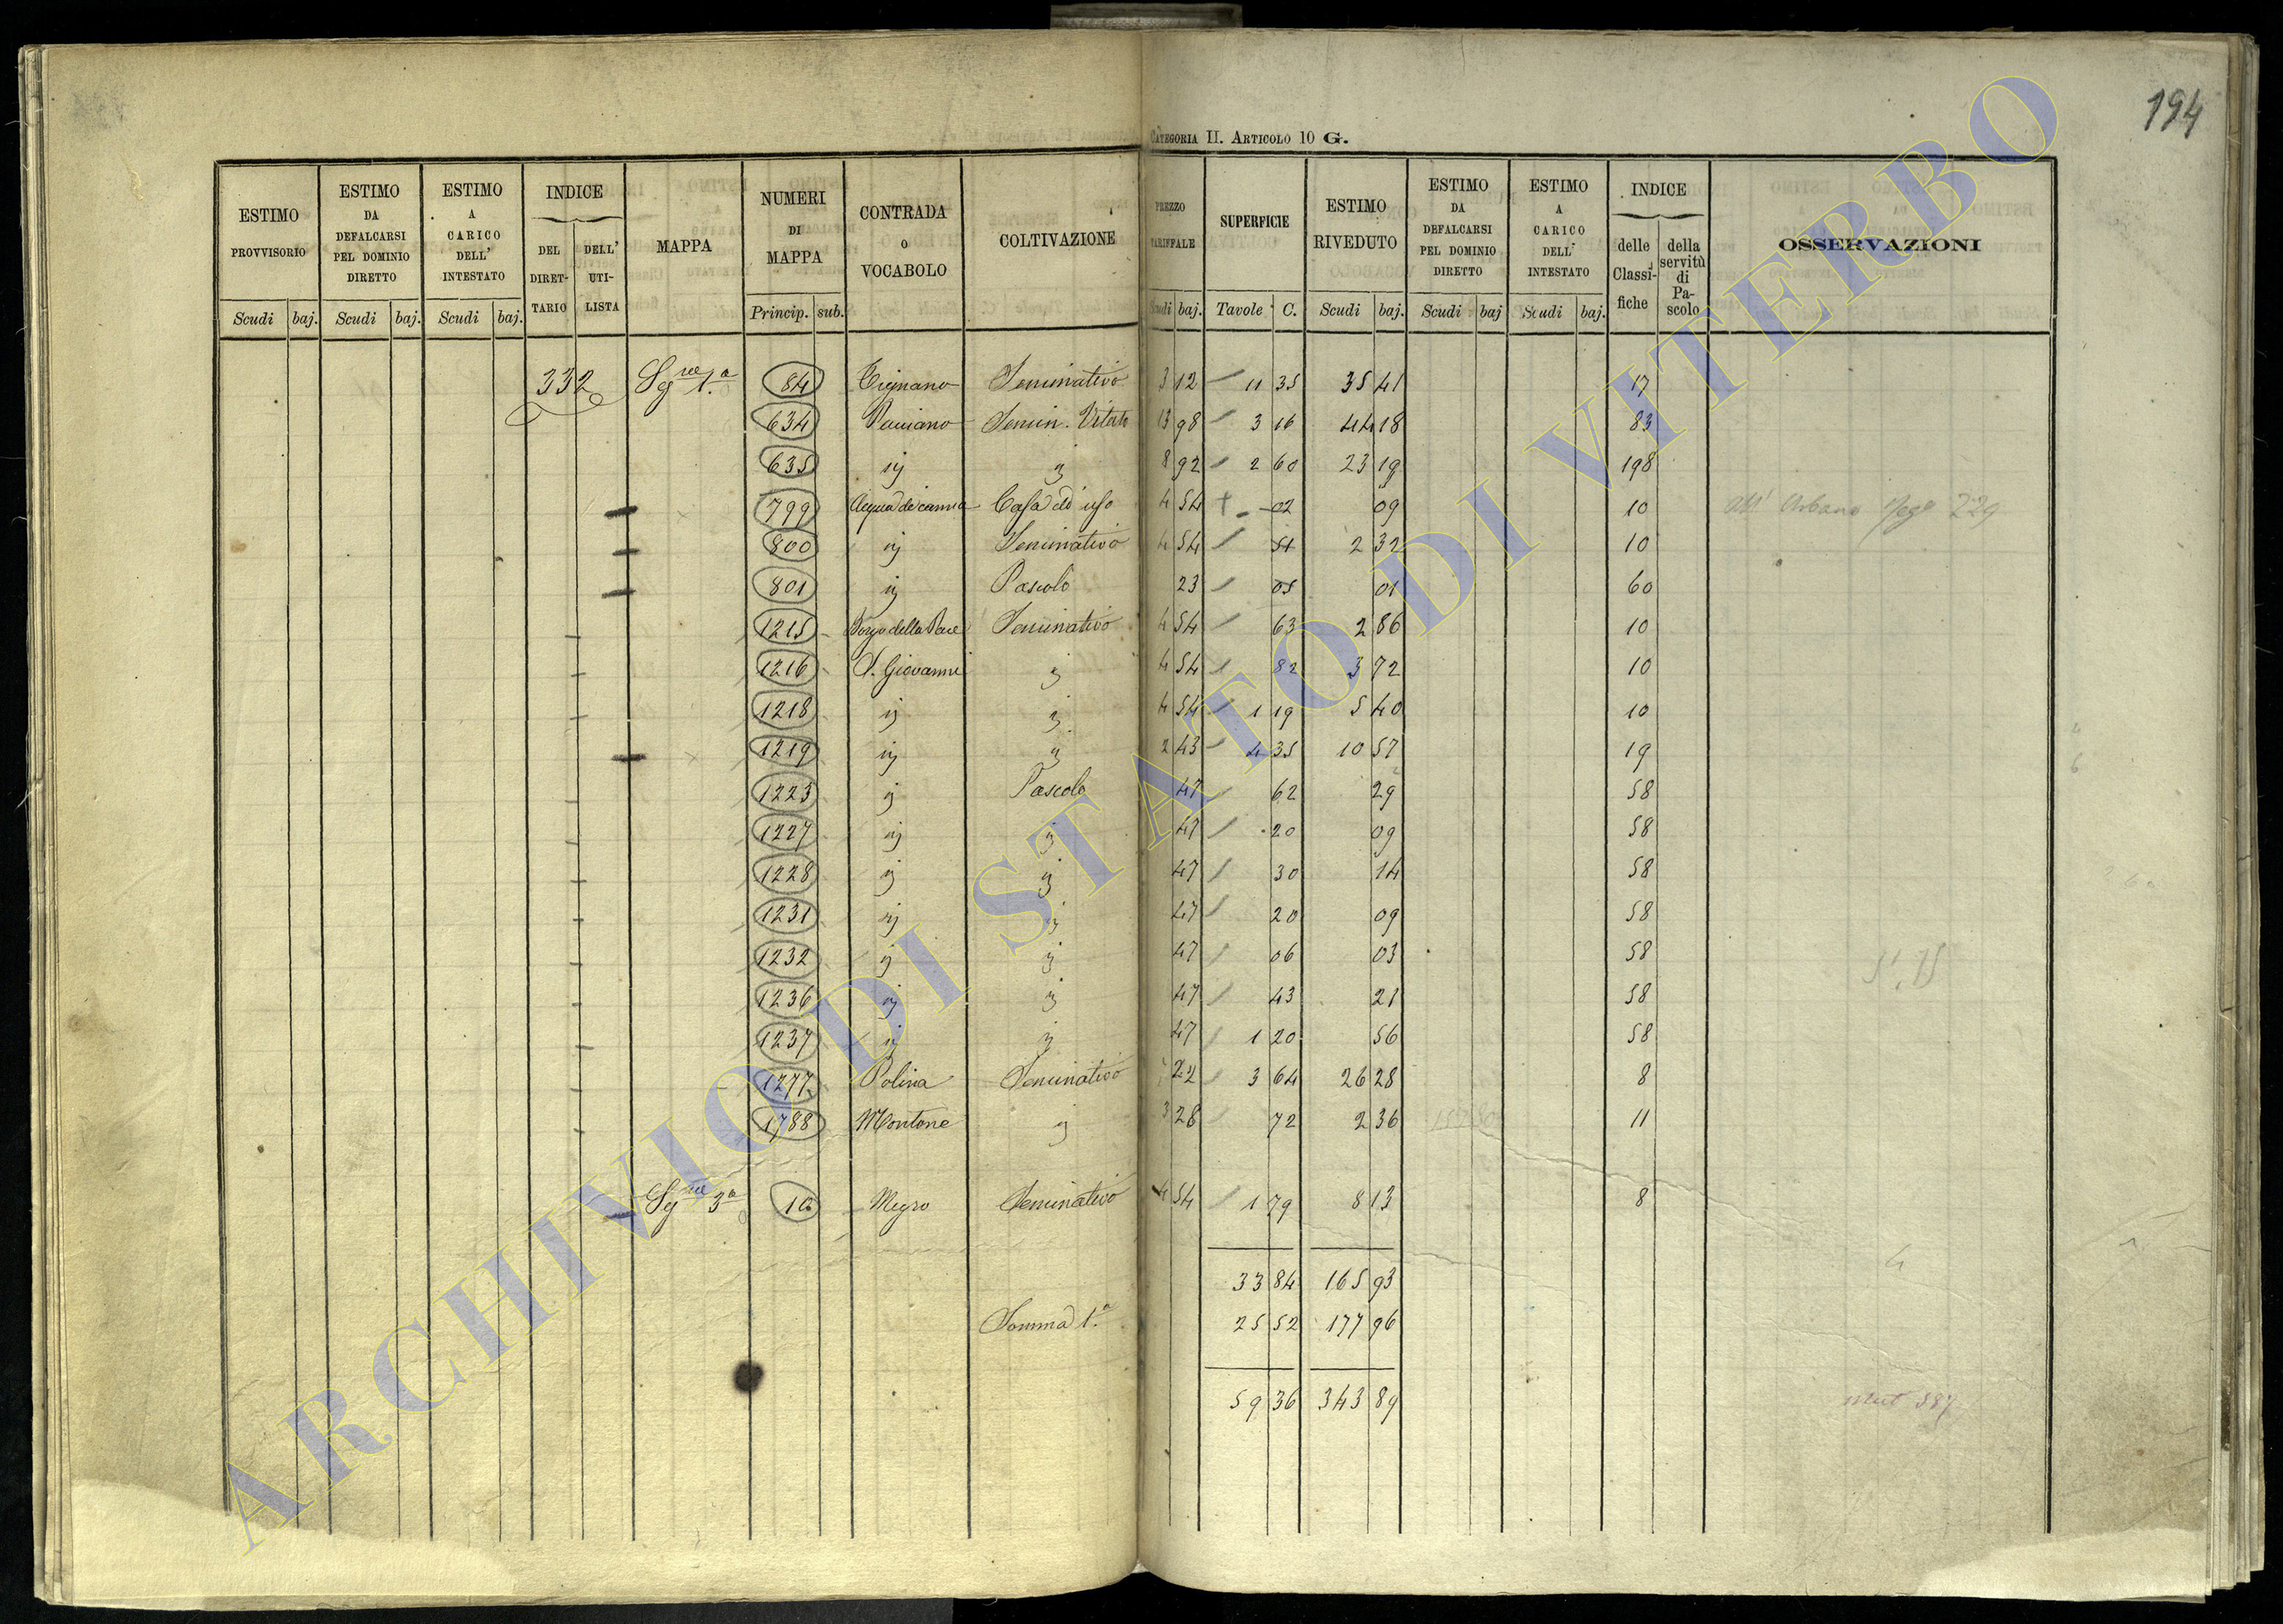 194
CATEGORIA II. ARTICOLO 10 G.
ESTIMO PROVVISORIO
ESTIMO DA DEFALCARSI PEL DOMINIO DIRETTO
ESTIMO A CARICO DELL' INTESTATO
INDICE
DEL DIRET- TARIO
DELL' UTI- LISTA
MAPPA
NUMERI DI MAPPA
CONTRADA O VOCABOLO
COLTIVAZIONE
PREZZO TARIFFALE
SUPERFICIE
ESTIMO RIVEDUTO
ESTIMO DA DEFALCARSI PEL DOMINIO DIRETTO
ESTIMO A CARICO DELL' INTESTATO
INDICE
delle Classi- fiche
della servitù di Pa- scolo
OSSERVAZIONI
Scudi baj. Scudi baj. Scudi baj. Princip. sub. Scudi baj. Tavole C. Scudi baj. Scudi baj Scudi baj.
332 Sgne 1.a 84 Tignano Seminativo 3 12 11 35 35 41 17
634 Semin. Vitato 13 98 3 16 44 18 83
635 ij ij 8 92 2 60 23 19 198
799 Acqua di canna Casa di uso 4 54 + 02 09 10 All' Urbano 229
800 ij Seminativo 4 54 51 2 32 10
801 ij Pascolo 23 05 01 60
1215 Borgo della Pace Seminativo 4 54 63 2 86 10
1216 S. Giovanni ij 4 54 82 3 72 10
1218 ij ij 4 54 1 19 5 40 10
1219 ij ij 2 43 4 35 10 57 19
1223 ij Pascolo 47 62 29 58
1227 ij ij 47 20 09 58
1228 ij ij 47 30 14 58
1231 ij ij 47 20 09 58
1232 ij ij 47 06 03 58
1236 ij ij 47 43 21 58
1237 ij ij 47 1 20 56 58
1277 Polina Seminativo 22 3 64 26 28 8
1788 Montone ij 3 28 72 2 36 11
Sgne 3a 10 Megro Seminativo 4 54 1 79 8 13 8
33 84 165 93
Somma 1.a 25 52 177 96
59 36 343 89
ARCHIVIO DI STATO DI VITERBO